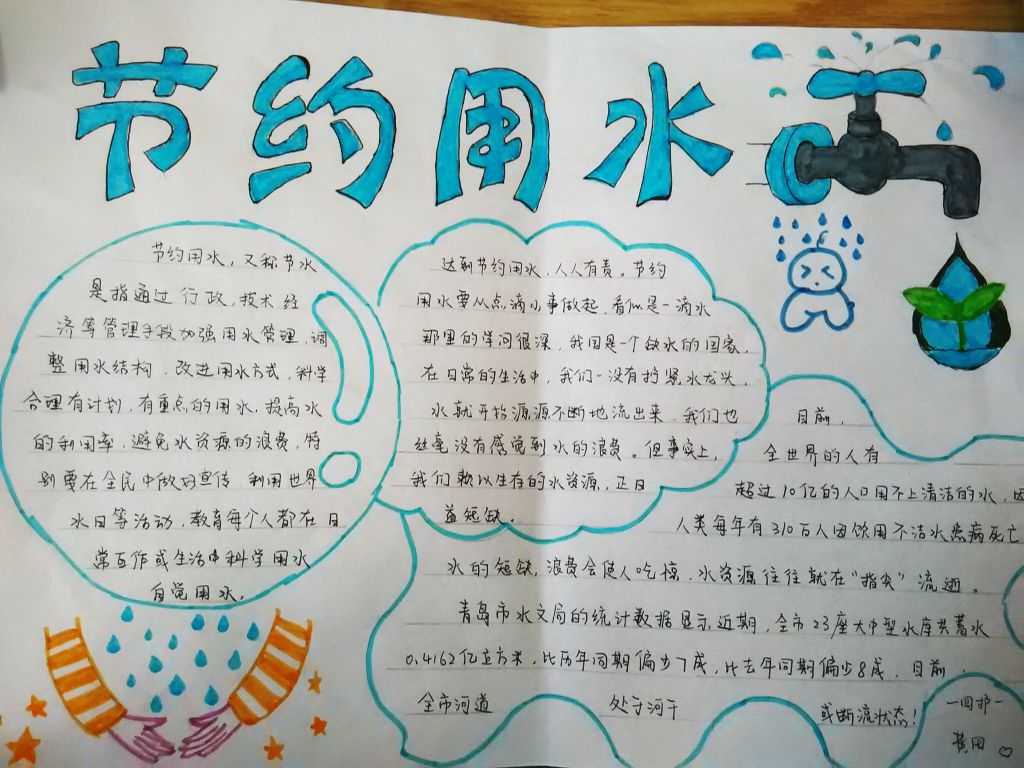 节约用水
节约用水，又称节水
是指通过行政，技术经
济等管理手段加强用水管理，调
整用水结构，改进用水方式，科学
合理有计划，有重点的用水，提高水
的利用率，避免水资源的浪费，特
别要在全民中做好宣传，利用世界
水日等活动，教育每个人都在日
常工作或生活中科学用水
自觉用水。
达到节约用水，人人有责。节约
用水要从点滴小事做起，看似是一滴水
那里的学问很深，我国是一个缺水的国家，
在日常的生活中，我们一没有拧紧水龙头，
水就开始源源不断地流出来，我们也
丝毫没有感觉到水的浪费。但事实上，
我们赖以生存的水资源，正日
益短缺。
目前，
全世界的人有
超过10亿的人口用不上清洁的水，因
人类每年有310万人因饮用不洁水患病死亡
水的短缺，浪费会使人吃惊，水资源往往就在“指尖”流逝。
青岛市水文局的统计数据显示，近期，全市23座大中型水库共蓄水
0.4162亿立方米，比历年同期偏少7成，比去年同期偏少8成，目前，
全市河道 处于河干 或断流状态！
一四护一